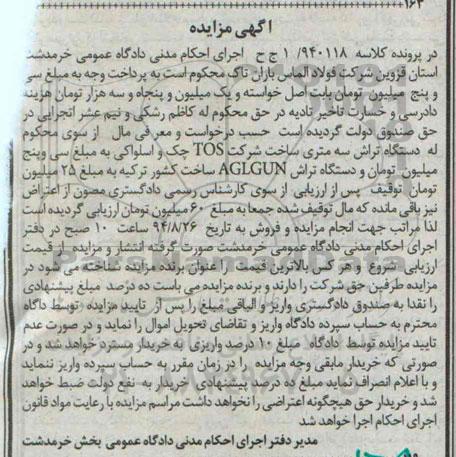 ۱۶۳
آگهی مزایده
در پرونده کلاسه ۹۴۰۱۱۸/ ۱ ج ح اجرای احکام مدنی دادگاه عمومی خرمدشت
استان قزوین شرکت فولاد الماس بازان تاک محکوم است به پرداخت وجه به مبلغ سی
و پنج میلیون تومان بابت اصل خواسته و یک میلیون و پنجاه و سه هزار تومان هزینه
دادرسی و خسارت تاخیر تادیه در حق محکوم له کاظم رشکی و نیم عشر اجرایی در
حق صندوق دولت گردیده است حسب درخواست و معرفی مال از سوی محکوم
له دستگاه تراش سه متری ساخت شرکت TOS چک و اسلواکی به مبلغ سی وپنج
میلیون تومان و دستگاه تراش AGLGUN ساخت کشور ترکیه به مبلغ ۲۵ میلیون
تومان توقیف پس از ارزیابی از سوی کارشناس رسمی دادگستری مصون از اعتراض
نیز باقی مانده که مال توقیف شده جمعا به مبلغ ۶۰ میلیون تومان ارزیابی گردیده است
لذا مراتب جهت انجام مزایده و فروش به تاریخ ۹۴/۸/۲۶ ساعت ۱۰ صبح در دفتر
اجرای احکام مدنی دادگاه عمومی خرمدشت صورت گرفته انتشار و مزایده از قیمت
ارزیابی شروع و هر کس بالاترین قیمت را عنوان برنده مزایده شناخته می شود در
مزایده طرفین حق شرکت را دارند و برنده مزایده می باست ده درصد مبلغ پیشنهادی
را نقدا به صندوق دادگستری واریز و الباقی مبلغ را پس از تایید مزایده توسط داگاه
محترم به حساب سپرده دادگاه واریز و تقاضای تحویل اموال را نماید و در صورت عدم
تایید مزایده توسط دادگاه مبلغ ۱۰ درصد واریزی به خریدار مسترد خواهد شد و در
صورتی که خریدار مابقی وجه مزایده را در زمان مقرر به حساب سپرده واریز ننماید
و با اعلام انصراف نماید مبلغ ده درصد پیشنهادی خریدار به نفع دولت ضبط خواهد
شد و خریدار حق هیچگونه اعتراضی را نخواهد داشت مراسم مزایده با رعایت مواد قانون
اجرای احکام اجرا خواهد شد
مدیر دفتر اجرای احکام مدنی دادگاه عمومی بخش خرمدشت